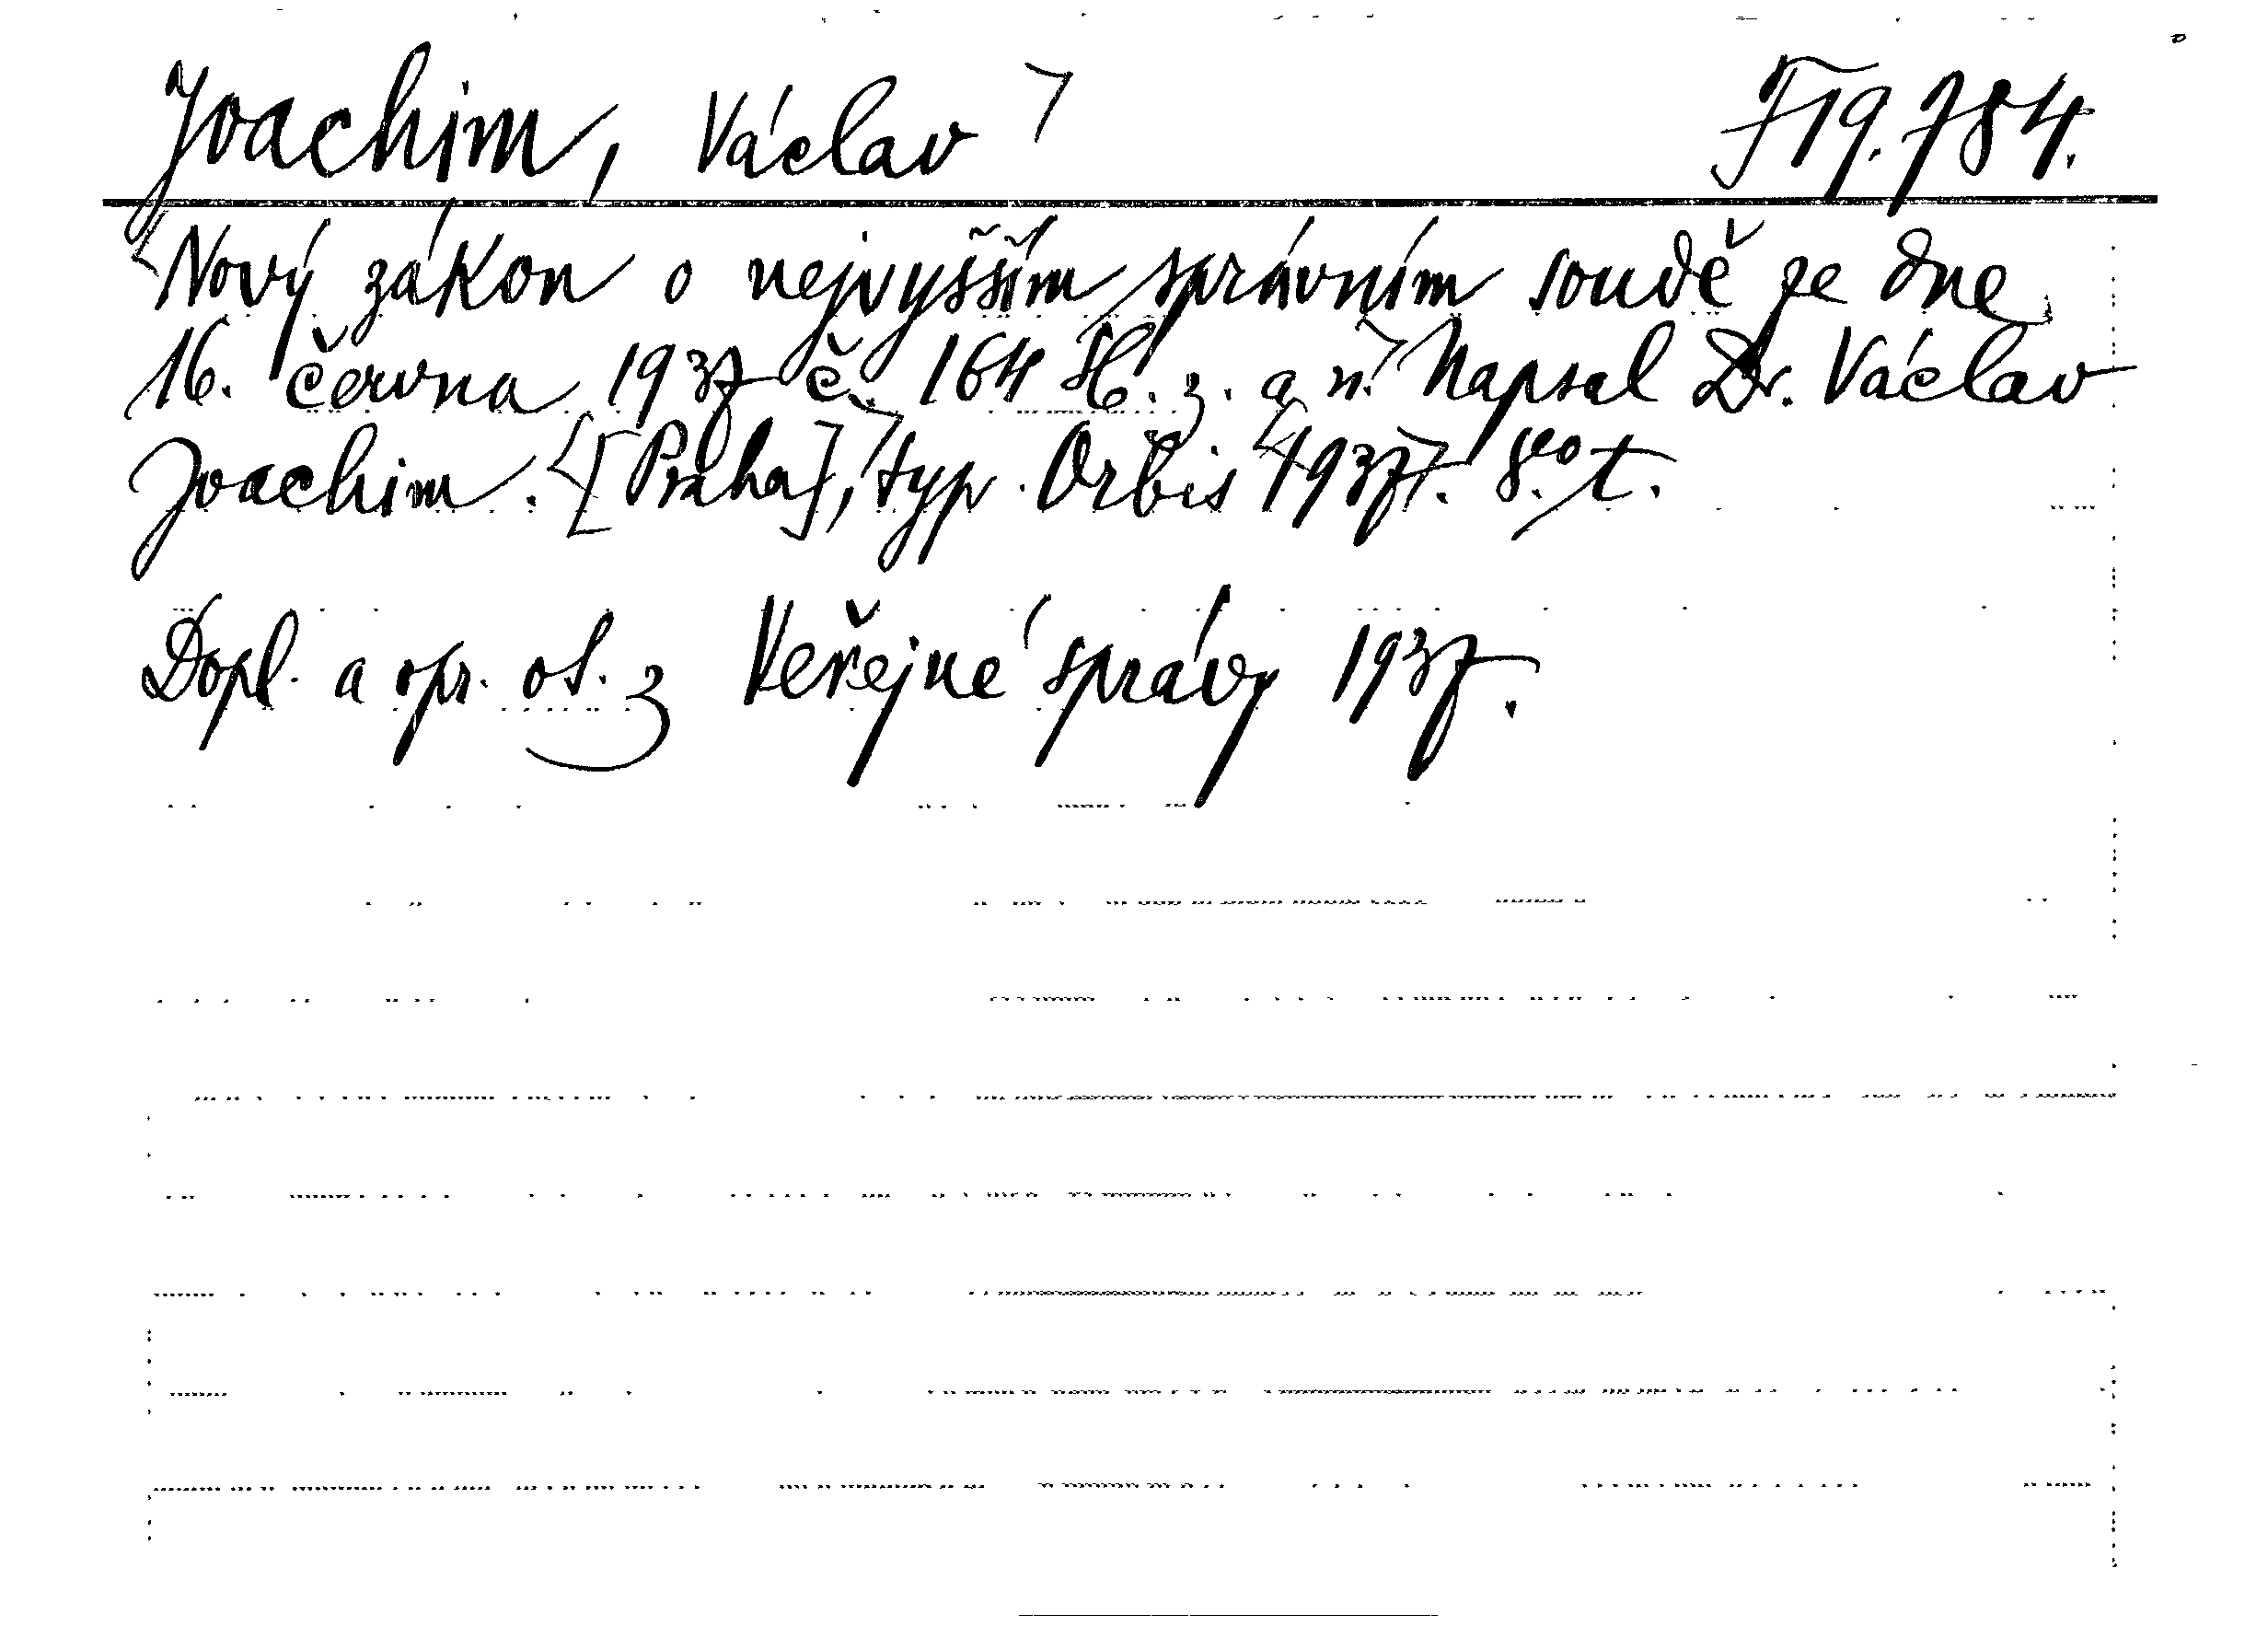 Joachim, Václav F 19.784.
Nový zákon o nejvyšším správním soudě ze dne
16. června 1937 č. 164 Sb. z. a n. Napsal Dr. Václav
Joachim. [Praha], typ. Orbis 1937. 8° t.
Dopl. a opr. ot. z Veřejné správy 1937.